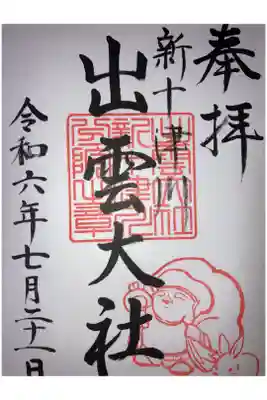 奉拝
新十津川
出雲大社
令和六年七月二十一日